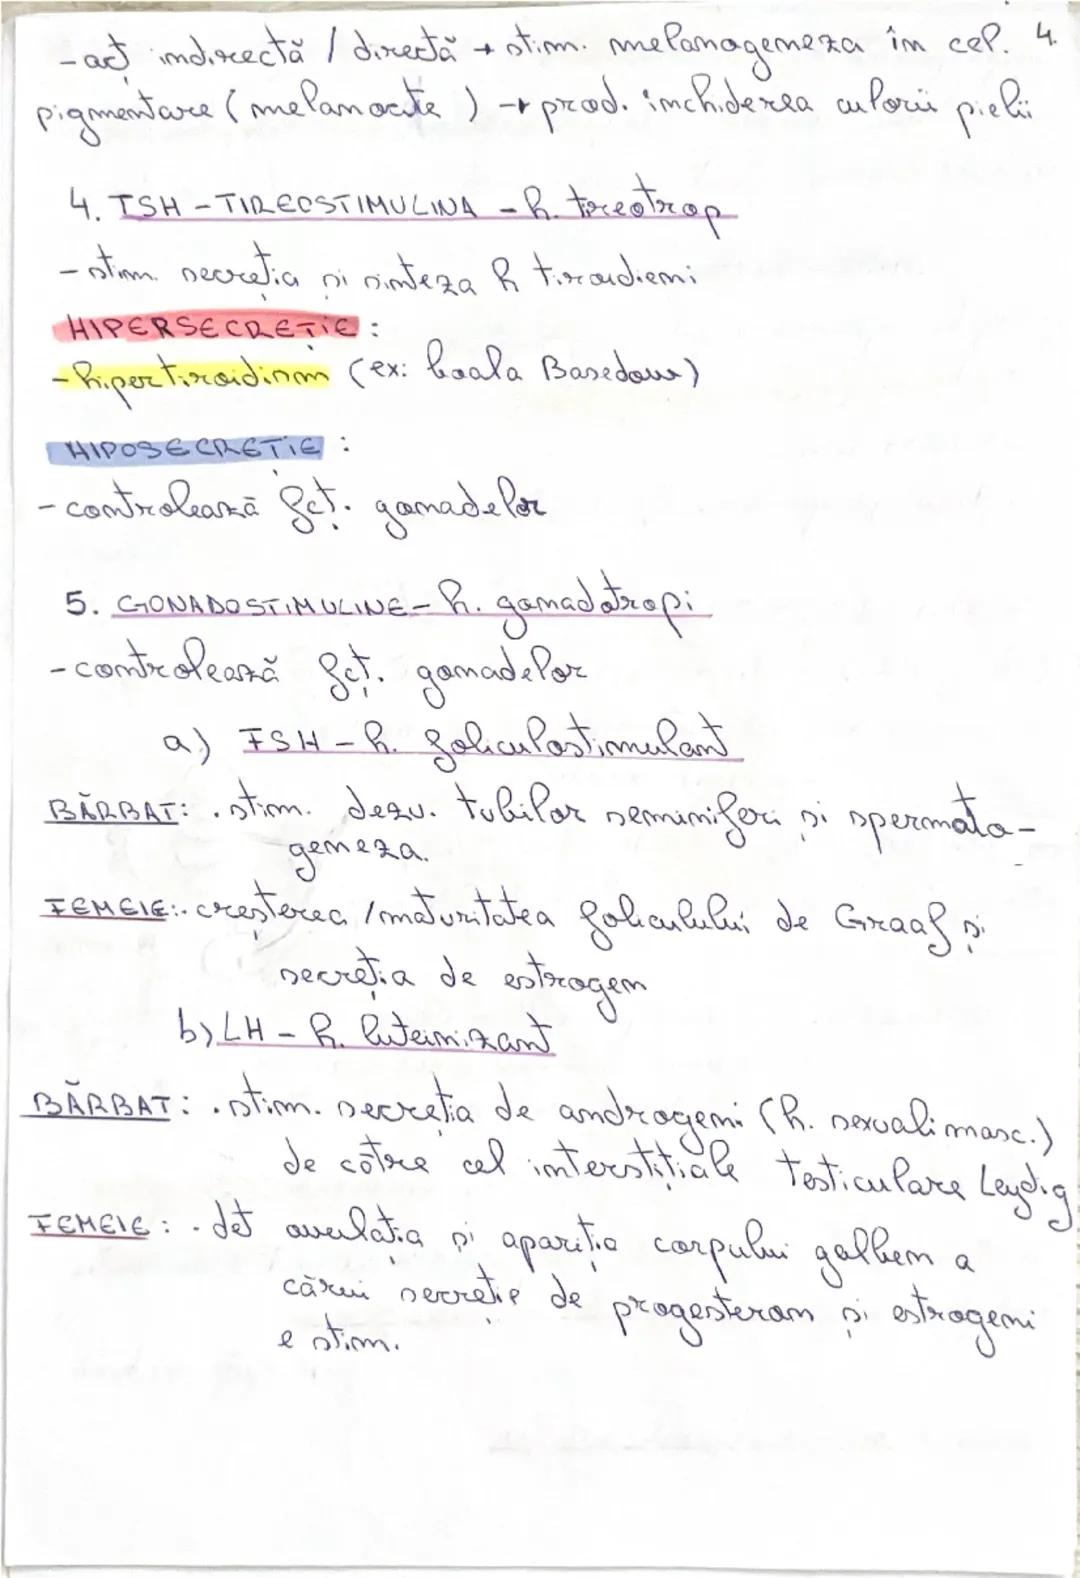 - acț indirectă / directă → stim. melanogeneza în cel. 4.
pigmentare (melanocite) → prod. închiderea culorii pielii
4. TSH - TIREOSTIMULINA - h. tireotrop
- stim. secreția și sinteza h tiroidieni
HIPERSECREȚIE :
- hipertiroidism (ex: boala Basedow)
HIPOSECREȚIE :
- controlează fcț. gonadelor
5. GONADOSTIMULINE - h. gonadotropi
- controlează fcț. gonadelor
a) FSH - h. foliculostimulant
BĂRBAT: . stim. dezv. tubilor seminiferi și spermato-
geneza.
FEMEIE: . creșterea / maturitatea foliculului de Graaf și
secreția de estrogen
b) LH - h. luteinizant
BĂRBAT: . stim. secreția de androgeni (h. sexuali masc.)
de către cel interstițiale testiculare Leydig
FEMEIE: . det ovulația și apariția corpului galben a
cărui secreție de progesteron și estrogeni
e stim.